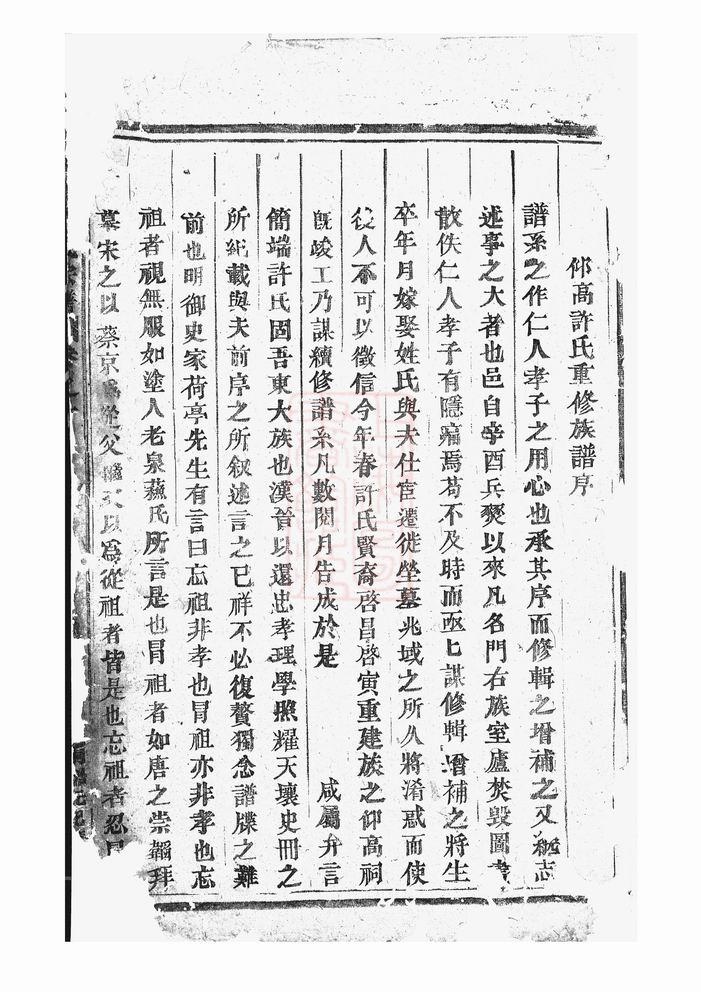 仰高許氏重修族譜序
譜系之作仁人孝子之用心也承其序而修輯之增補之又繼志
述事之大者也邑自辛酉兵燹以來凡名門右族室廬焚毀圖書
散佚仁人孝子有隱痛焉苟不及時而亟亟謀修輯增補之將生
卒年月嫁娶姓氏與夫仕宦遷徙坐墓兆域之所久將淆惑而使
後人不可以徵信今年春許氏賢裔啓昌啓寅重建族之仰高祠
旣峻工乃謀續修譜系凡數閱月告成於是 咸屬弁言
簡端許氏固吾東大族也漢晉以還忠孝理學照耀天壤史冊之
所紀載與夫前序之所叙述言之已祥不必復贅獨念譜牒之難
前也明御史家荷亭先生有言曰忘祖非孝也冐祖亦非孝也忘
祖者視無服如塗人老泉蘓氏所言是也冐祖者如唐之崇韜拜
墓宋之以蔡京為從父又以為從祖者皆是也忘祖者忍